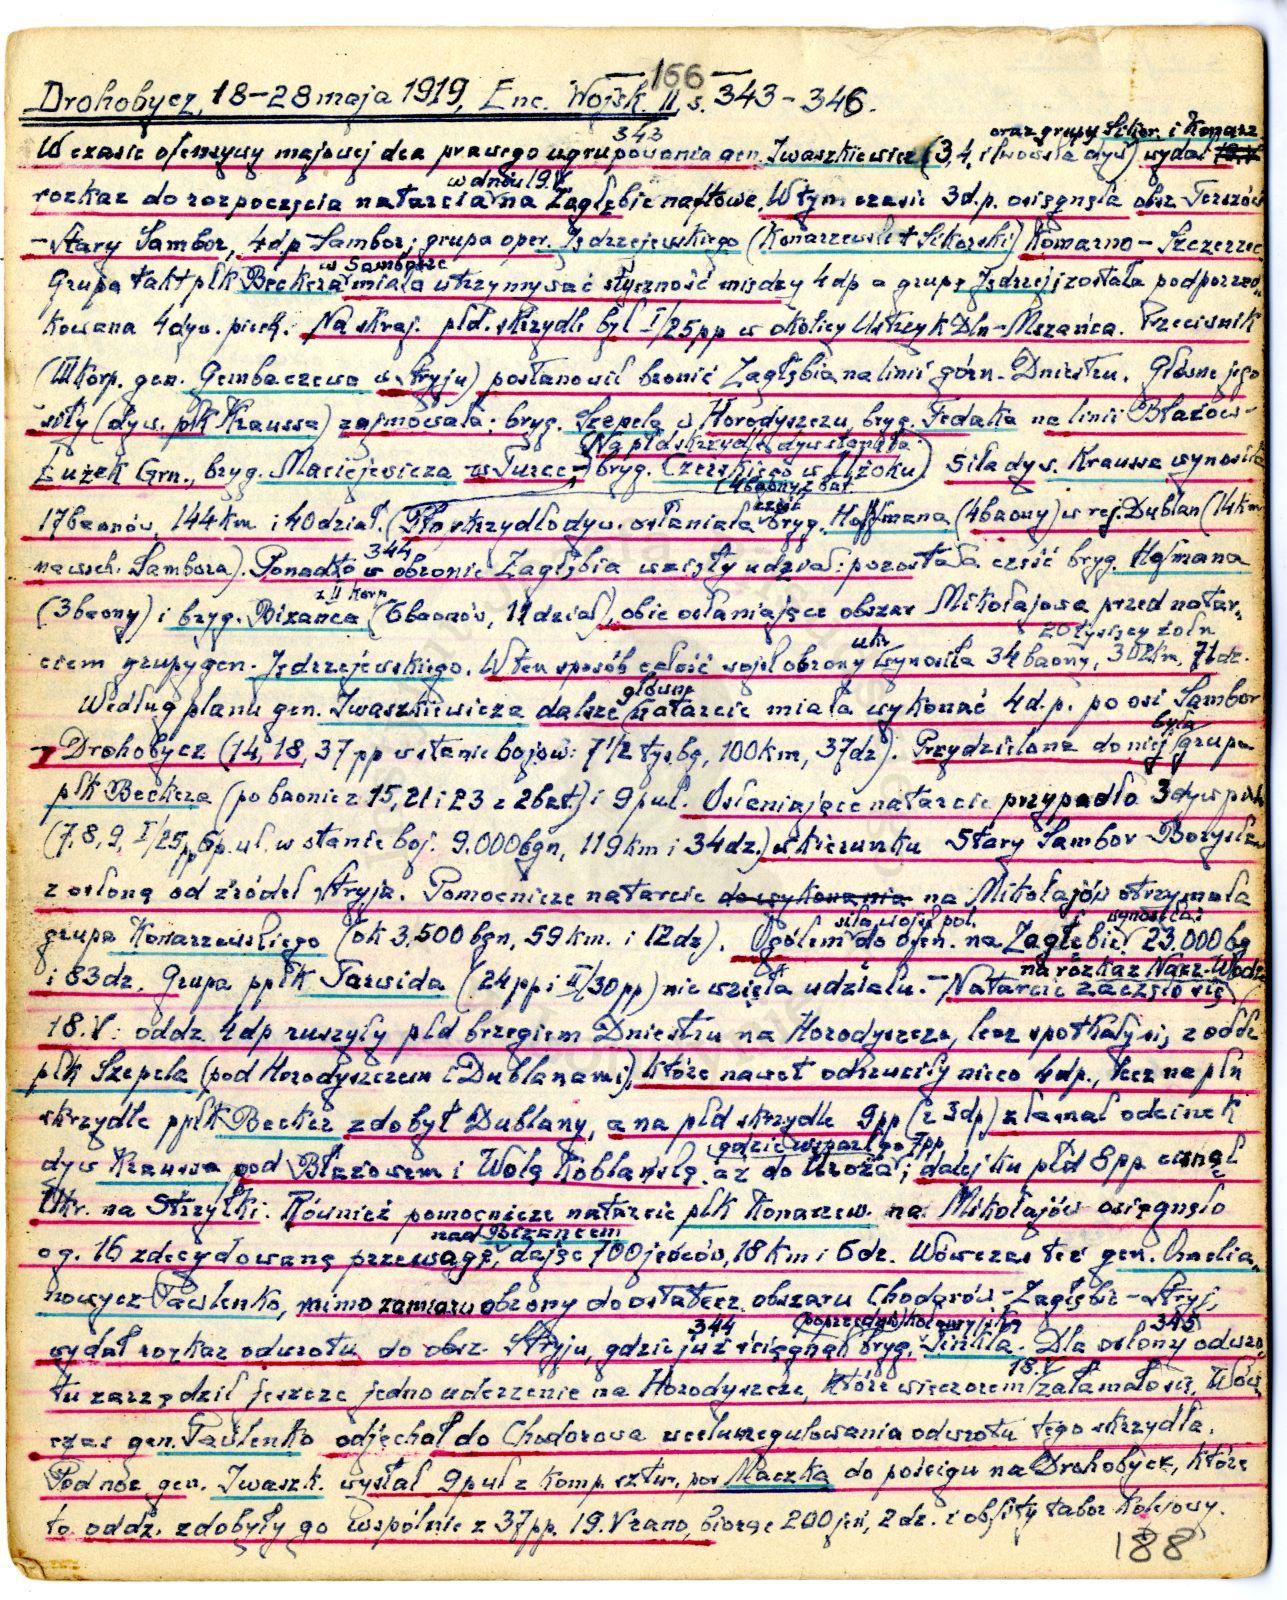 — 166 —
Drohobycz, 18–28 maja 1919, Enc. Wojsk. II s. 343–346.
343 oraz grupy Sikor. i Konarz.
W czasie ofensywy majowej dca prawego ugrupowania gen. Iwaszkiewicz (3, 4, i lwowska dyw) wydał
w dniu 19.V
rozkaz do rozpoczęcia natarcia na Zagłębie naftowe. W tym czasie 3 d.p. osiągnęła obsz. Terszów
– Stary Sambor, 4 dp – Sambor; grupa oper. Jędrzejewskiego (Konarzewski + Sikorski) Komarno – Szczerzec
w Samborze
Grupa takt płk Beckera miała utrzymywać styczność między 4 dp a grupą Jędrzej. i została podporząd-
kowana 4 dyw. piech. Na skraj. płd. skrzydle był I/25 pp w okolicy Ustrzyk Dln – Mszańca. Przeciwnik
(III Korp. gen. Gembaczewa w Stryju) postanowił bronić Zagłębia na linii górn. Dniestru. Główne jego
siły (dyw. płk Kraussa) zajmowała: bryg. Szepela w Horodyszczu, bryg. Fedaka na linii Błażów–
Na płd skrzydle dyw stanęła
Łużek Grn., bryg. Maciejewicza w Turce – bryg. Czerskiego w Użoku) Siła dyw. Kraussa wynosiła
(4 baony 2 bat.
17 baonów, 144 km i 40 dział. (Płn. skrzydło dyw. osłaniała część bryg. Hoffmana (4 baony) w rej. Dublan (14 km
344
na wsch. Sambora). Ponadto w obronie Zagłębia wzięły udział: pozostała część bryg. Hofmana
z II Korp
(3 baony) i bryg. Bizanca (6 baonów, 11 dział), obie osłaniające obszar Mikołajowa przed natar-
ukr. 20 tysięcy żołn
ciem grupy gen. Jędrzejewskiego. W ten sposób całość wojsk obrony wynosiła 34 baony, 302 km, 71 dz.
główne
Według planu gen. Iwaszkiewicza dalsze natarcie miała wykonać 4 d.p. po osi Sambor
była
– Drohobycz (14, 18, 37 pp w stanie bojow: 7 1/2 tys bg, 100 km, 37 dz). Przydzielona do niej grupa
płk Beckera (po baonie z 15, 21 i 23 z 2 bat) i 9 p ul. Osłaniające natarcie przypadło 3 dyw
(7, 8, 9, I/25 pp, 6 p. ul. w stanie boj. 9.000 bgn, 119 km i 34 dz.) w kierunku Stary Sambor – Borysław
z osłoną od źródeł Stryja. Pomocnicze natarcie do wykonania na Mikołajów otrzymała
siła wojsk pol. wynosiła:
grupa Konarzewskiego (ok 3.500 bgn, 59 km. i 12 dz). Ogółem do ofen. na Zagłębie 23.000 bg
na rozkaz Nacz. Wodza
i 83 dz. Grupa ppłk Tarwida (24 pp i II/30 pp) nie wzięła udziału. – Natarcie zaczęło się
18.V: oddz. 4 dp ruszyły płd brzegiem Dniestru na Horodyszcze, lecz spotkały się z oddz.
płk Szepela (pod Horodyszczem i Dublanami), które nawet odrzuciły nieco 4 dp., lecz na płn
skrzydle ppłk Becker zdobył Dublany, a na płd skrzydle 9 pp (z 3 dp) złamał odcinek
gdzie wsparł go 7 pp
dyw Kraussa pod Błażowem i Wolę Koblańską aż do Uroża; dalej ku płd 8 pp ciągnął
Ukr. na Strzyłki. Również pomocnicze natarcie płk Konarzew. na Mikołajów osiągnęło
nad Bizancem
o g. 16 zdecydowaną przewagę, dając 700 jeńców, 18 km i 6 dz. Wówczas też gen. Omelia-
nowycz Pawlenko, mimo zamiaru obrony do ostatecz. obszaru Chodorów – Zagłębie – Stryj,
344 345
wydał rozkaz odwrotu do obsz. Stryju, gdzie już ściągnął bryg. Szinkla. Dla osłony odwro-
18.V
tu zarządził jeszcze jedno uderzenie na Horodyszcze, które wieczorem załamało się. Wów-
czas gen. Pawlenko odjechał do Chodorowa w celu uregulowania odwrotu tego skrzydła.
Pod noc gen. Iwaszk. wysłał 9 p ul z komp. sztur. por Maczka do pościgu na Drohobycz, które
to oddz. zdobyły go wspólnie z 37 pp. 19.V rano, biorąc 200 jeń, 2 dz. i obfity tabor kolejowy.
188